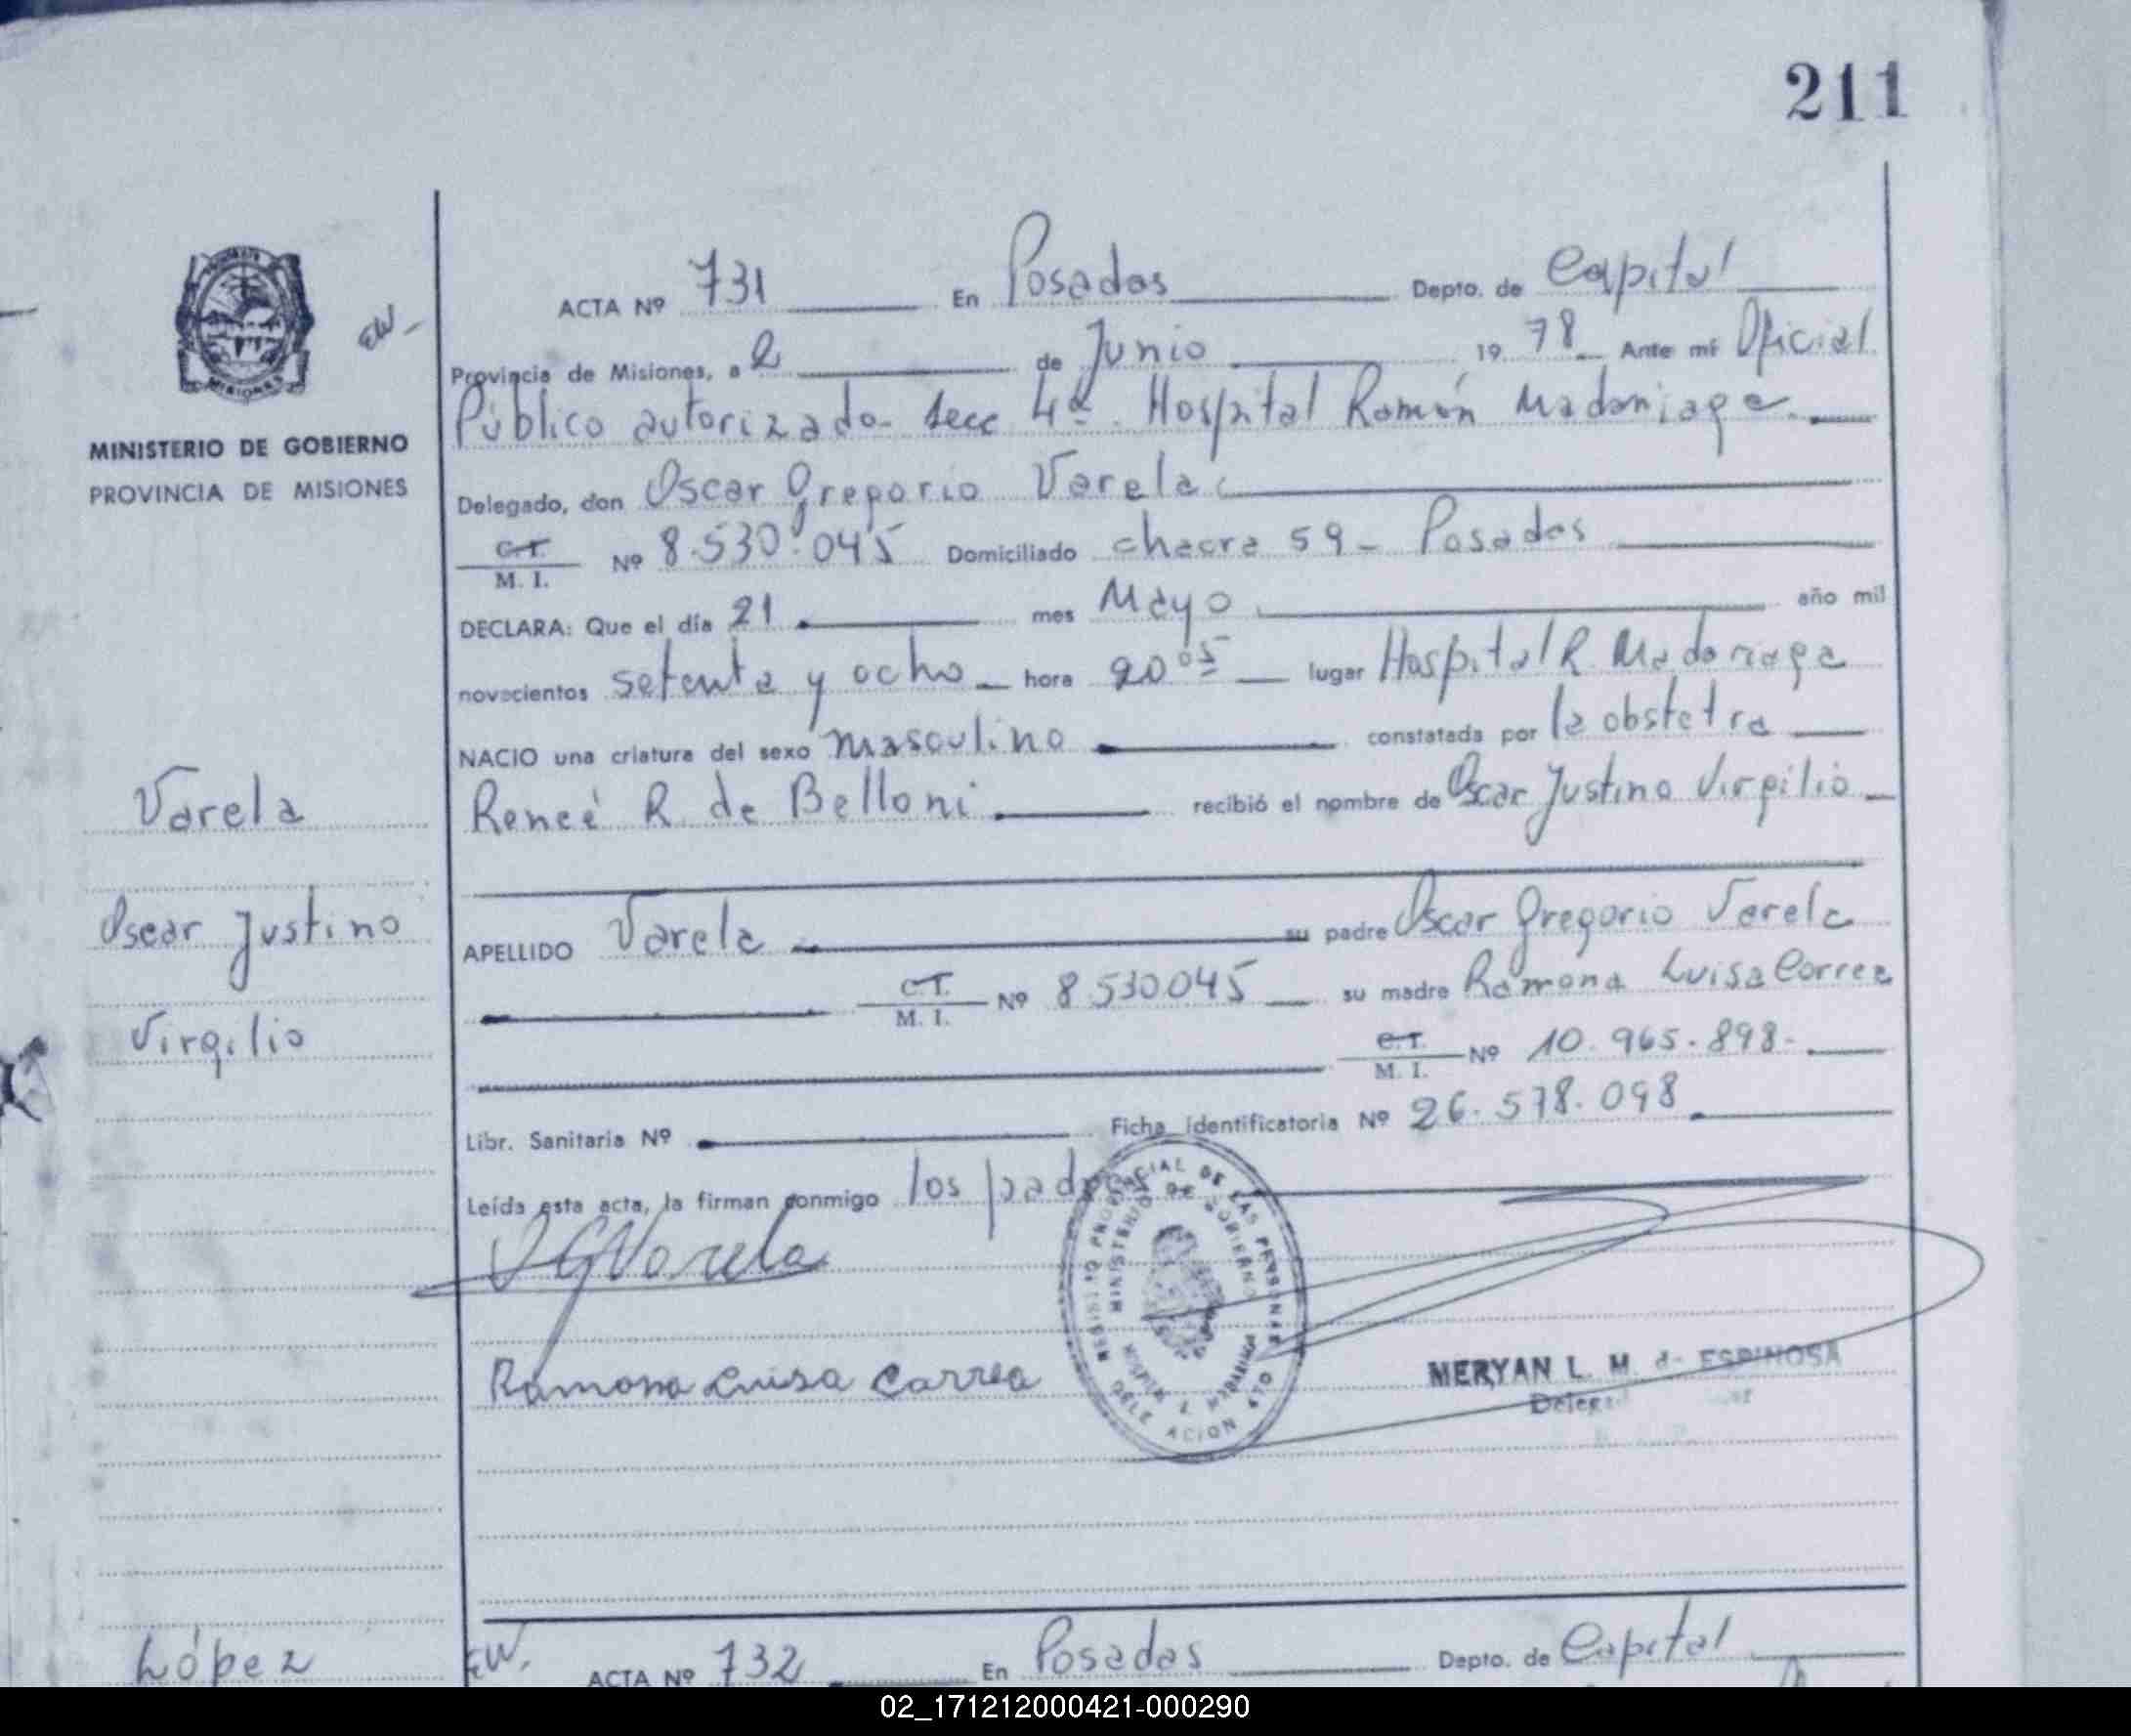 211
EW-
MINISTERIO DE GOBIERNO
PROVINCIA DE MISIONES
ACTA Nº 731 En Posadas Depto. de Capital
Provincia de Misiones, a 2 de Junio 19 78 Ante mí Oficial
Público autorizado- Secc 4ª. Hospital Ramón Madariaga.
Delegado, don Oscar Gregorio Varela
C.I. M. I. Nº 8.530.045 Domiciliado chacra 59 - Posadas
DECLARA: Que el día 21 mes Mayo año mil
novecientos setenta y ocho hora 20 05 lugar Hospital R. Madariaga
NACIO una criatura del sexo masculino constatada por la obstetra
Reneé R. de Belloni recibió el nombre de Oscar Justino Virgilio
APELLIDO Varela su padre Oscar Gregorio Varela
C.I. M. I. Nº 8530045 su madre Ramona Luisa Correa
C.I. M. I. Nº 10.965.898.
Libr. Sanitaria Nº Ficha identificatoria Nº 26.578.098
Leída esta acta, la firman conmigo los padres
Varela
Oscar Justino
Virgilio
OGVarela
Ramona Luisa Correa
REGISTRO PROVINCIAL DE LAS PERSONAS
MINISTERIO DE GOBIERNO
MERYAN L. M. de ESPINOSA
López
EW.
ACTA Nº 732 En Posadas Depto. de Capital
02_171212000421-000290